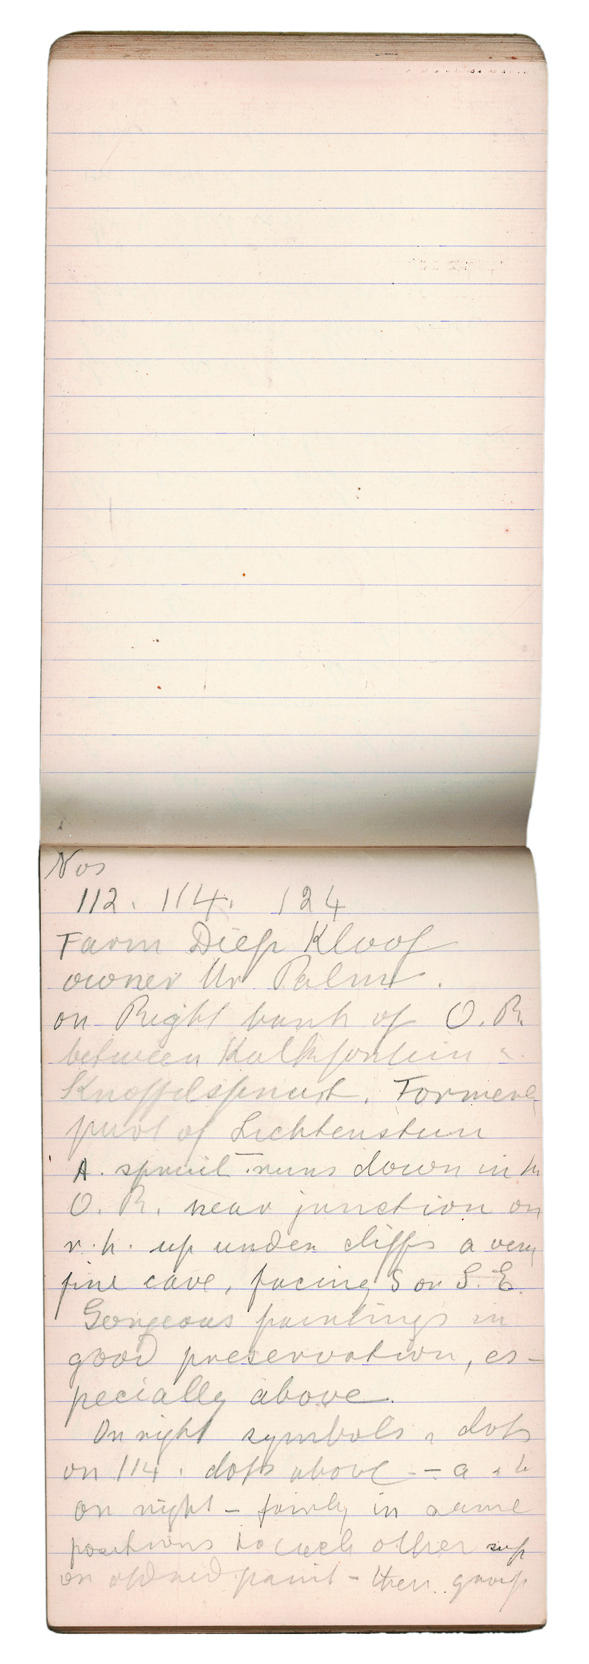 Nos
112. 114. 124
Farm Diep Kloof
owner Mr Palm.
on Right bank of O.R.
between Kalkfontein &
Knoffelspruit. Formerly
part of Lichtenstein
A. spruit runs down in to
O. R. near junction on
r.h. up under cliffs a very
fine cave, facing S or S. E.
Gorgeous paintings in
good preservation, es-
pecially above.
On right symbols & dots
on 114. dots above - a & b
on right - fairly in same
positions to each other sup
on old red paint - then group